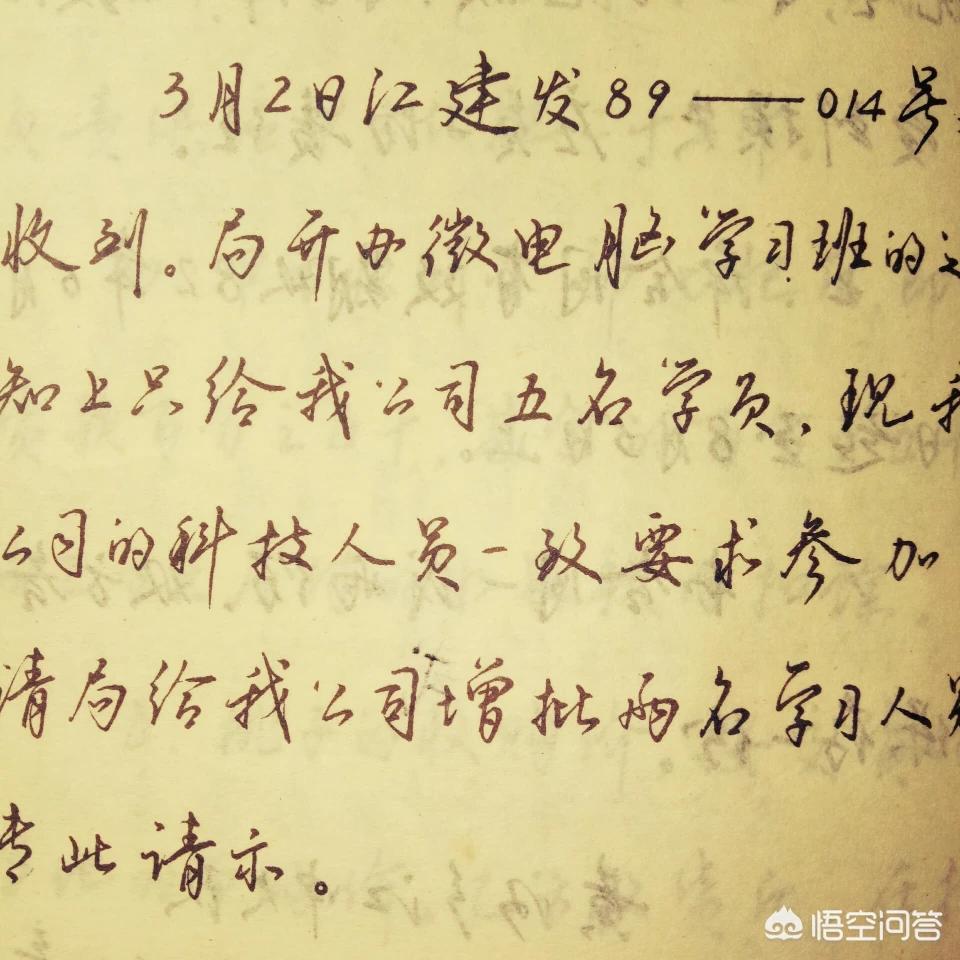 3月2日江建发89——014号
收到。局开办微电脑学习班的
知上只给我公司五名学员、现我
公司的科技人员一致要求参加
请局给我公司增批两名学习人员
专此请示。
悟空问答